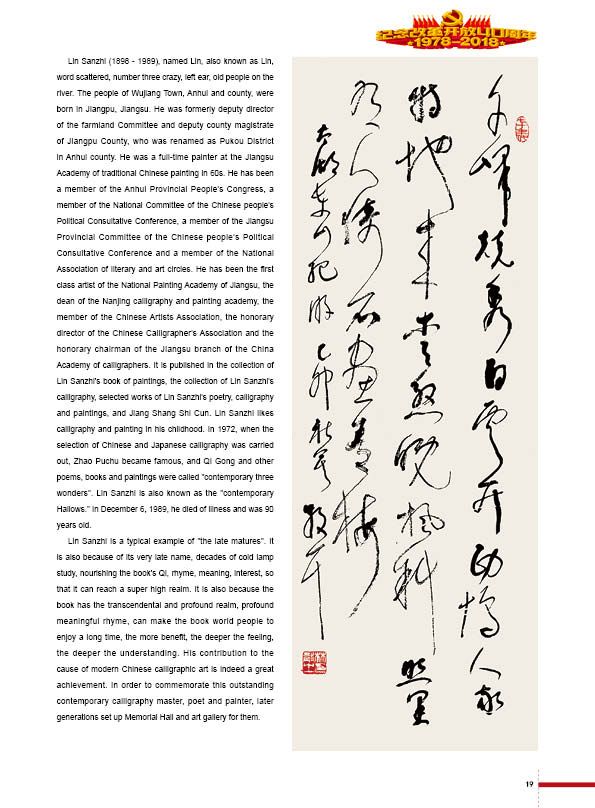 纪念改革开放40周年
1978-2018
Lin Sanzhi (1898 - 1989), named Lin, also known as Lin,
word scattered, number three crazy, left ear, old people on the
river. The people of Wujiang Town, Anhui and county, were
born in Jiangpu, Jiangsu. He was formerly deputy director
of the farmland Committee and deputy county magistrate
of Jiangpu County, who was renamed as Pukou District
in Anhui county. He was a full-time painter at the Jiangsu
Academy of traditional Chinese painting in 60s. He has been
a member of the Anhui Provincial People's Congress, a
member of the National Committee of the Chinese people's
Political Consultative Conference, a member of the Jiangsu
Provincial Committee of the Chinese people's Political
Consultative Conference and a member of the National
Association of literary and art circles. He has been the first
class artist of the National Painting Academy of Jiangsu, the
dean of the Nanjing calligraphy and painting academy, the
member of the Chinese Artists Association, the honorary
director of the Chinese Calligrapher's Association and the
honorary chairman of the Jiangsu branch of the China
Academy of calligraphers. It is published in the collection of
Lin Sanzhi's book of paintings, the collection of Lin Sanzhi's
calligraphy, selected works of Lin Sanzhi's poetry, calligraphy
and paintings, and Jiang Shang Shi Cun. Lin Sanzhi likes
calligraphy and painting in his childhood. In 1972, when the
selection of Chinese and Japanese calligraphy was carried
out, Zhao Puchu became famous, and Qi Gong and other
poems, books and paintings were called "contemporary three
wonders". Lin Sanzhi is also known as the "contemporary
Hallows." In December 6, 1989, he died of illness and was 90
years old.
Lin Sanzhi is a typical example of "the late matures". It
is also because of its very late name, decades of cold lamp
study, nourishing the book's Qi, rhyme, meaning, interest, so
that it can reach a super high realm. It is also because the
book has the transcendental and profound realm, profound
meaningful rhyme, can make the book world people to
enjoy a long time, the more benefit, the deeper the feeling,
the deeper the understanding. His contribution to the
cause of modern Chinese calligraphic art is indeed a great
achievement. In order to commemorate this outstanding
contemporary calligraphy master, poet and painter, later
generations set up Memorial Hall and art gallery for them.
秀白雲開 人家
特地來 晚楓
人倚石畫
太湖東山紀游
19